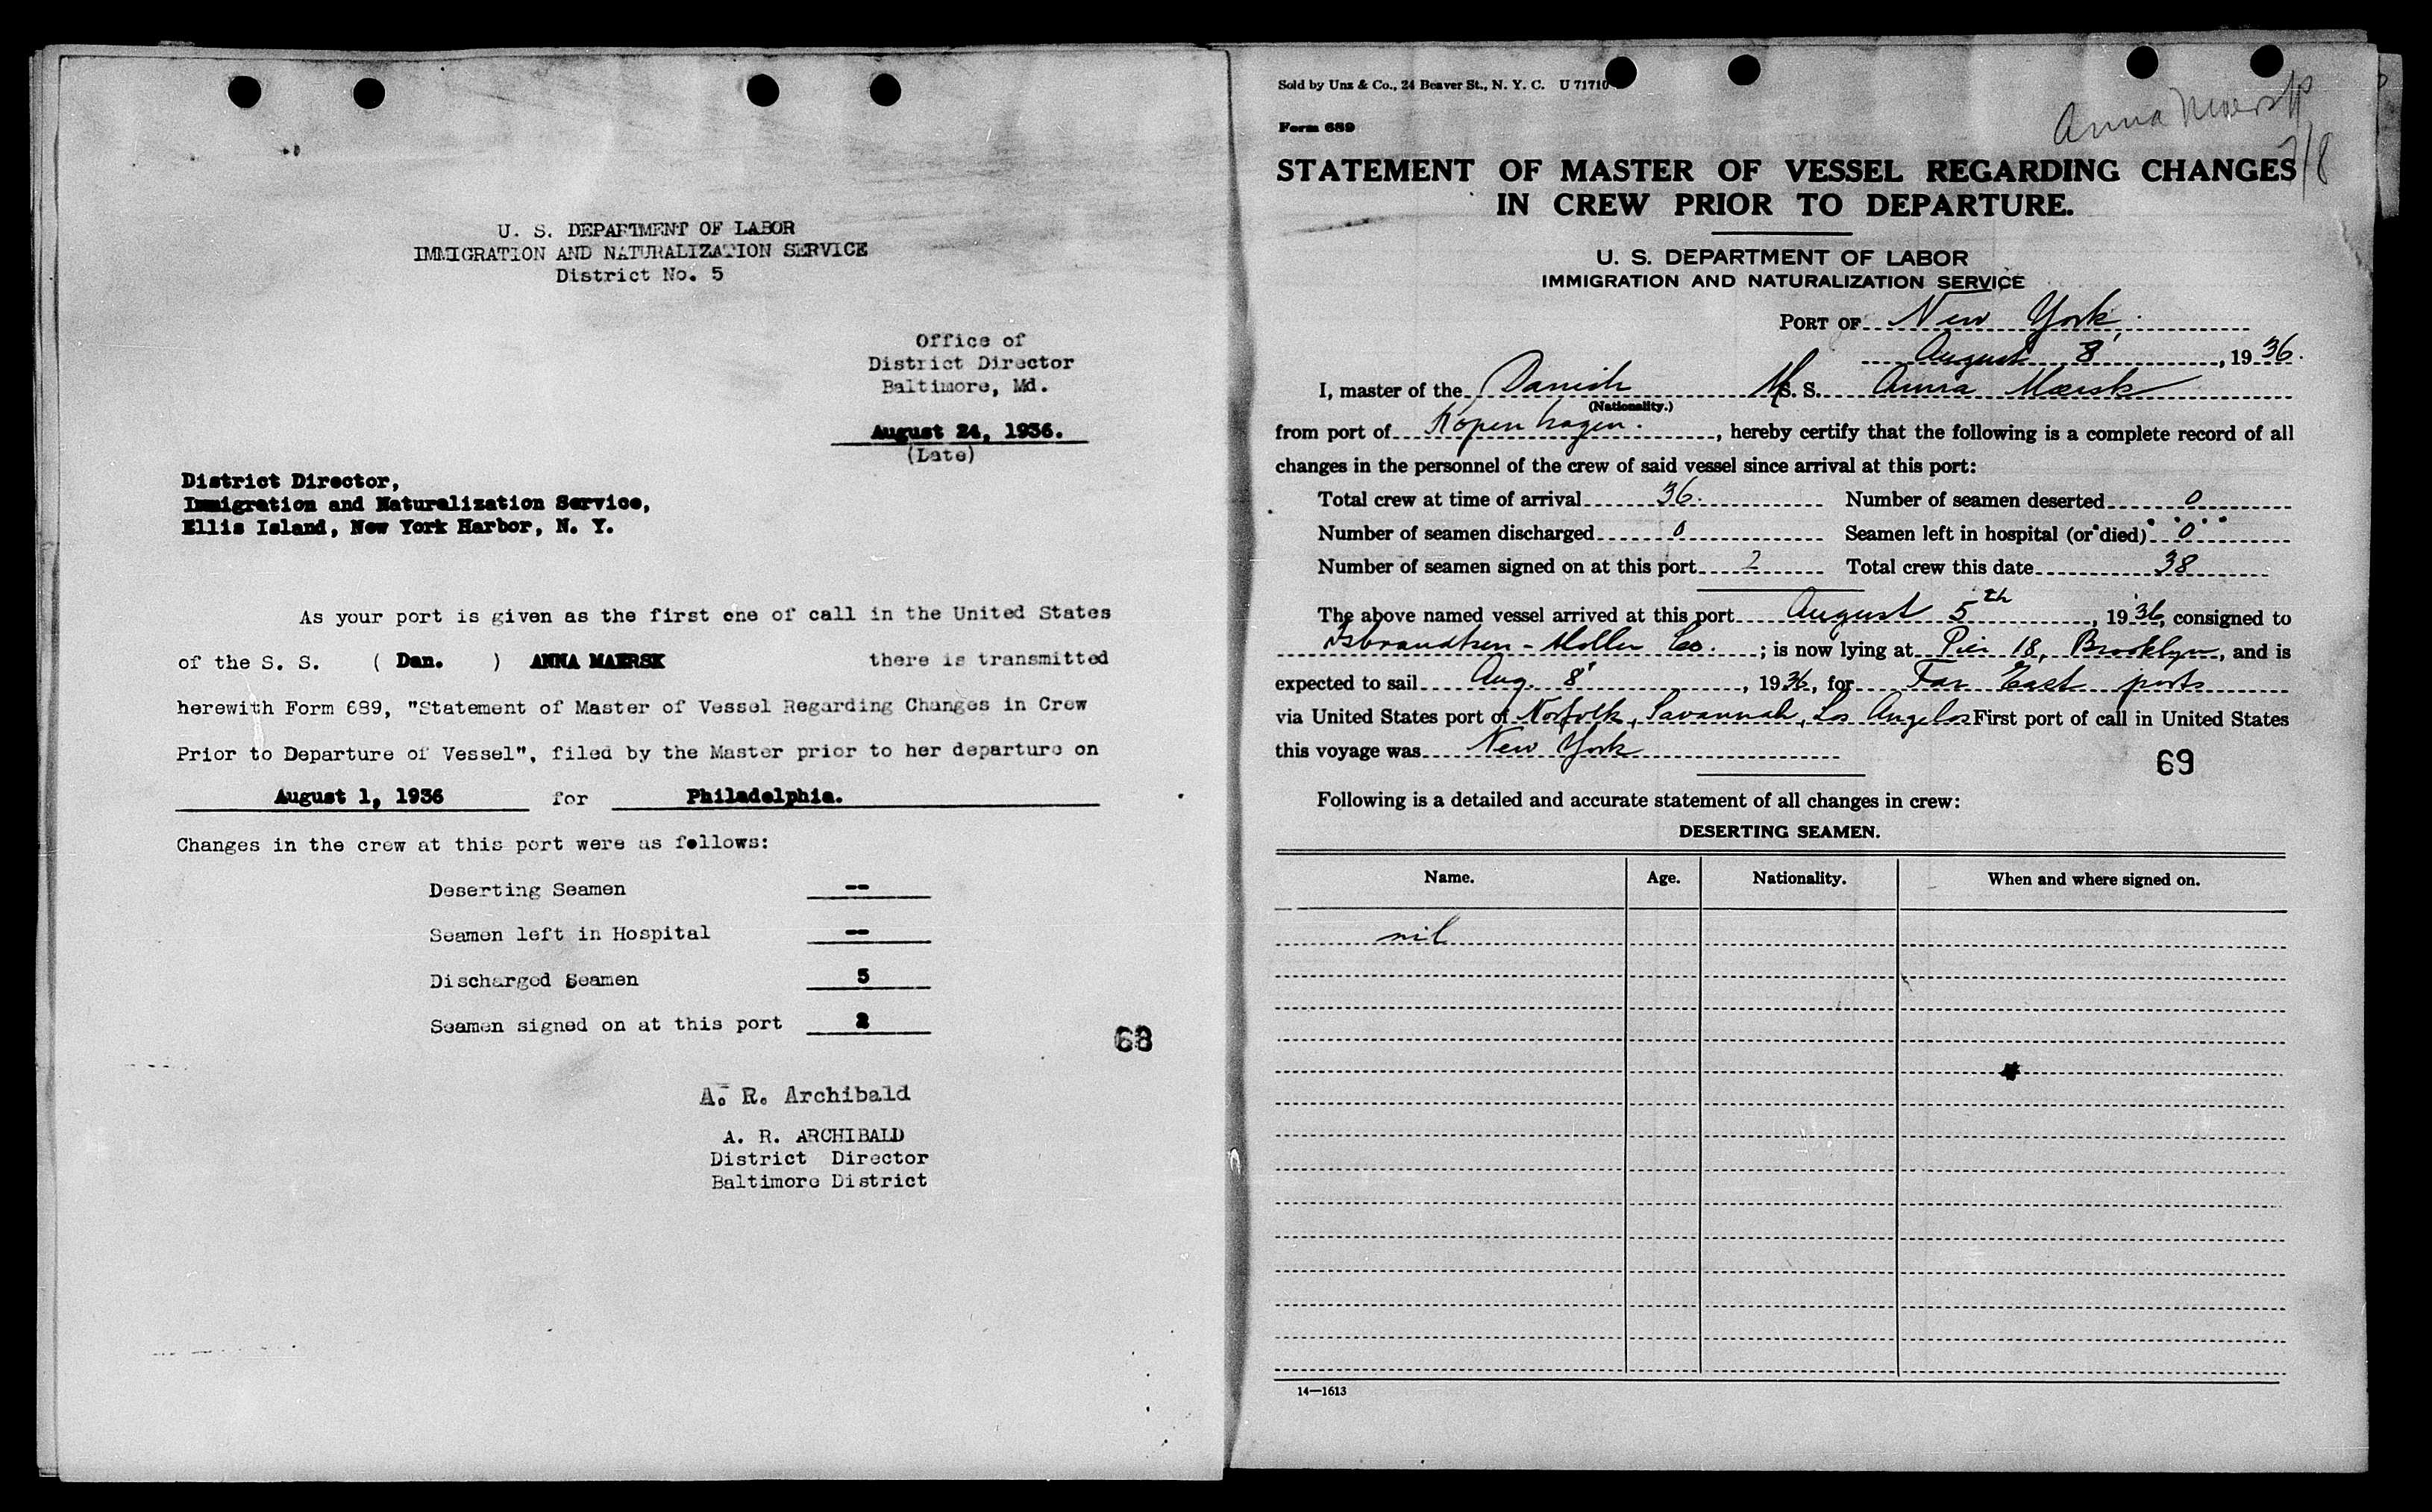 U. S. DEPARTMENT OF LABOR
IMMIGRATION AND NATURALIZATION SERVICE
District No. 5
Office of
District Director
Baltimore, Md.
August 24, 1936.
(Date)
District Director,
Immigration and Naturalization Service,
Ellis Island, New York Harbor, N. Y.
As your port is given as the first one of call in the United States
of the S. S. ( Dan. ) ANNA MAERSK there is transmitted
herewith Form 689, "Statement of Master of Vessel Regarding Changes in Crew
Prior to Departure of Vessel", filed by the Master prior to her departure on
August 1, 1936 for Philadelphia.
Changes in the crew at this port were as follows:
Deserting Seamen --
Seamen left in Hospital --
Discharged Seamen 5
Seamen signed on at this port 2
68
A. R. Archibald
A. R. ARCHIBALD
District Director
Baltimore District
Sold by Unz & Co., 24 Beaver St., N. Y. C. U 71710
Anna Maersk
Form 689
STATEMENT OF MASTER OF VESSEL REGARDING CHANGES
IN CREW PRIOR TO DEPARTURE.
U. S. DEPARTMENT OF LABOR
IMMIGRATION AND NATURALIZATION SERVICE
PORT OF New York.
August 8', 1936.
I, master of the Danish M S. S. Anna Mærsk
(Nationality.)
from port of Kopenhagen., hereby certify that the following is a complete record of all
changes in the personnel of the crew of said vessel since arrival at this port:
Total crew at time of arrival 36. Number of seamen deserted 0
Number of seamen discharged 0 Seamen left in hospital (or died) 0
Number of seamen signed on at this port 2 Total crew this date 38
The above named vessel arrived at this port August 5th, 1936, consigned to
Isbrandtsen - Moller Co. ; is now lying at Pier 18, Brooklyn, and is
expected to sail Aug. 8', 1936, for Far East ports
via United States port of Norfolk, Savannah, Los Angelos First port of call in United States
this voyage was New York
69
Following is a detailed and accurate statement of all changes in crew:
DESERTING SEAMEN.
Name. Age. Nationality. When and where signed on.
nil
14—1613